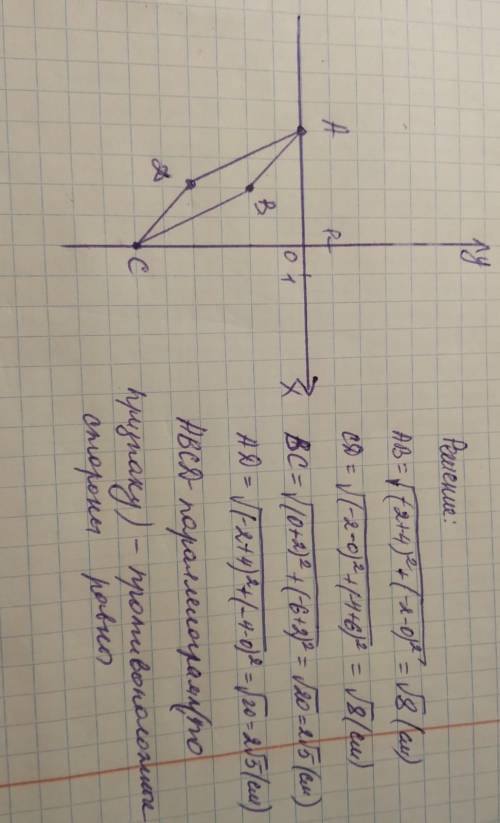 y
1
0
1
X
A
B
D
C
Решение:
AB = √(-2+4)² + (-2-0)² = √8 (см)
CD = √(-2-0)² + (-4+6)² = √8 (см)
BC = √(0+2)² + (-6+2)² = √20 = 2√5 (см)
AD = √(-2+4)² + (-4-0)² = √20 = 2√5 (см)
ABCD - параллелограмм (по
признаку) - противоположные
стороны равны